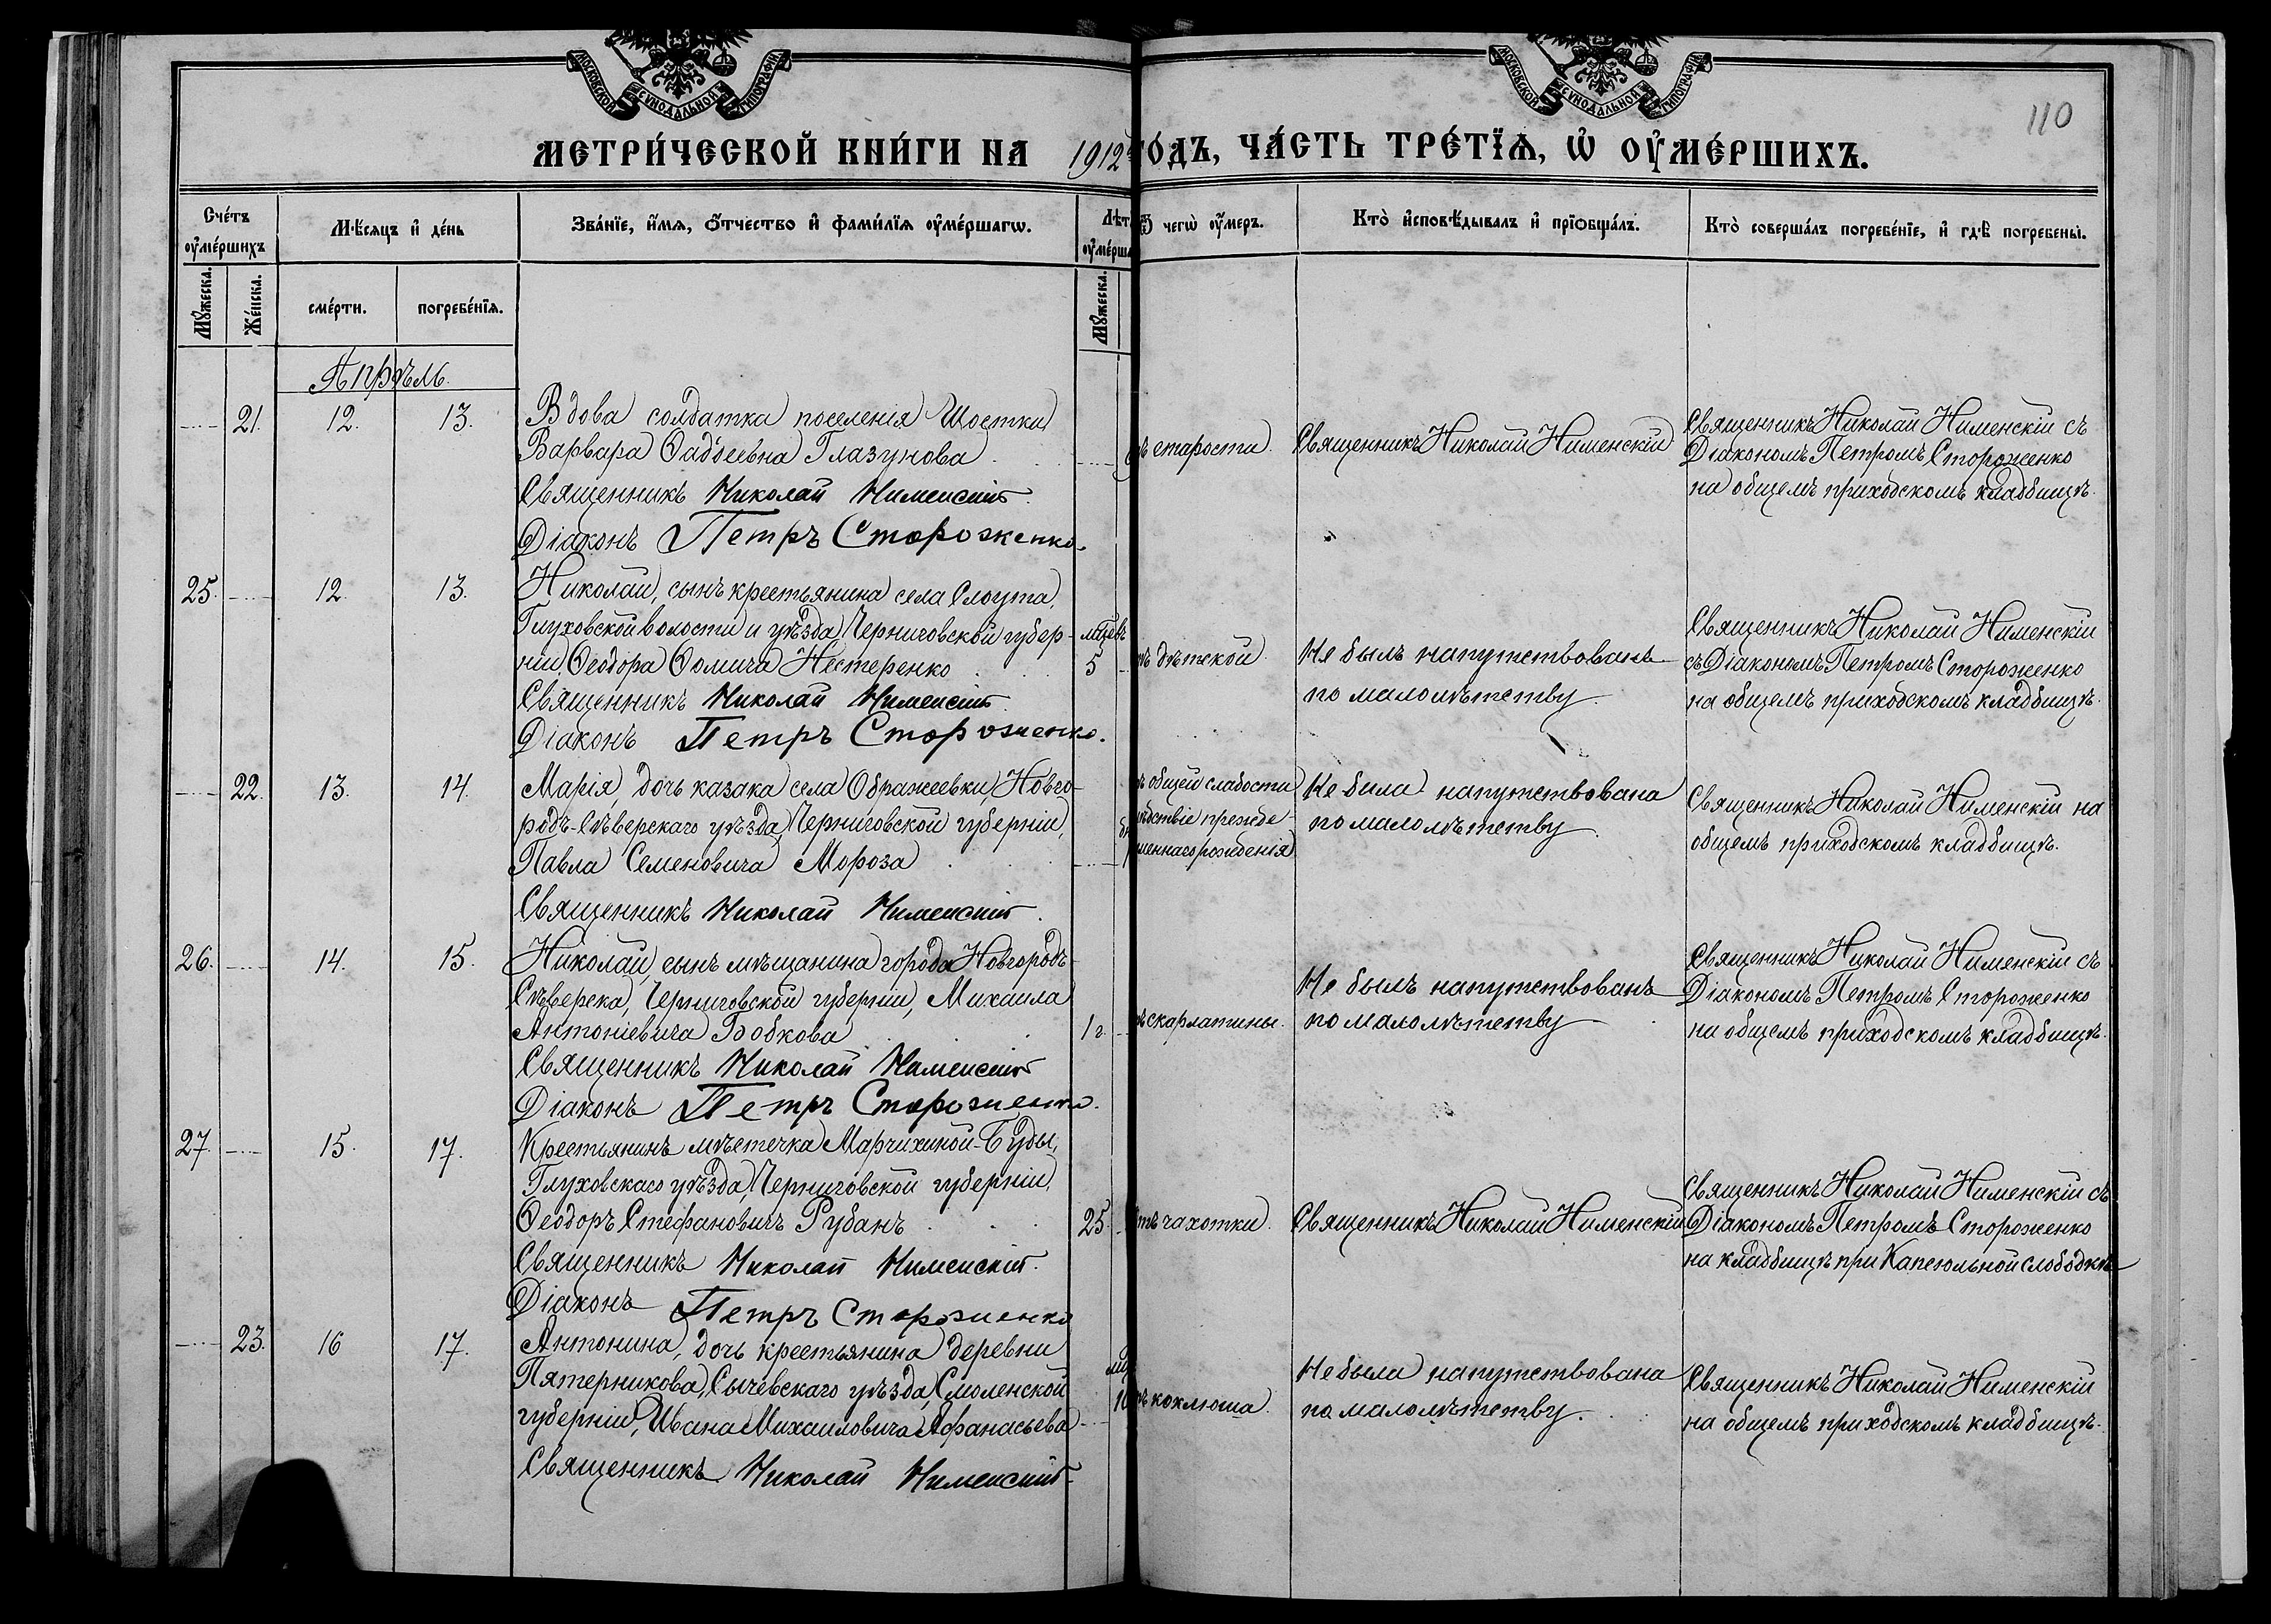 МОСКОВСКОЙ СѴНОДАЛЬНОЙ ТИПОГРАФІИ
МОСКОВСКОЙ СѴНОДАЛЬНОЙ ТИПОГРАФІИ
110
МЕТРИ́ЧЕСКОЙ КНИ́ГИ НА 1912 ГО́ДЪ, ЧА́СТЬ ТРЕ́ТЇѦ, Ѡ҆ ОУ҆МЕ́РШИХЪ.
Сче́тъ оу҆ме́ршихъ
Мѣ́сяцъ и҆ де́нь
Зва́нїе, и҆́мѧ, ѻ҆́тчество и҆ фами́лїѧ оу҆ме́ршагѡ.
Лѣт
оу҆ме́рша
Ѿ чегѡ̀ оу҆́меръ.
Кто̀ и҆сповѣ́дывалъ и҆ прїѡбща́лъ.
Кто̀ соверша́лъ погребе́нїе, и҆ гдѣ̀ погребены̀.
Мꙋ́жеска.
Же́нска.
сме́рти.
погребе́нїѧ.
Мꙋ́жеска.
Апрѣль.
21.
12.
13.
Вдова солдатка поселенія Шостки
Варвара Ѳаддеевна Глазунова
Священникъ Николай Нименскій.
Діаконъ Петръ Стороженко.
ъ старости.
Священникъ Николай Нименскій
Священникъ Николай Нименскій съ
Діакономъ Петромъ Стороженко
на общемъ приходскомъ кладбищѣ.
25.
12.
13.
Николай, сынъ крестьянина села Слоута,
Глуховской волости и уѣзда, Черниговской губер-
ніи, Ѳеодора Ѳомича Нестеренко
Священникъ Николай Нименскій.
Діаконъ Петръ Стороженко.
мѣсяцевъ
5
ъ дѣтской.
Не былъ напутствованъ
по малолѣтству.
Священникъ Николай Нименскій
съ Діакономъ Петромъ Стороженко
на общемъ приходскомъ кладбищѣ.
22.
13.
14.
Марія, дочь казака села Ображеевки, Новго-
родъ-Сѣверскаго уѣзда, Черниговской губерніи,
Павла Семеновича Мороза
Священникъ Николай Нименскій.
ъ общей слабости
ѣдствіе прежде-
меннаго рожденія
Не была напутствована
по малолѣтству.
Священникъ Николай Нименскій на
общемъ приходскомъ кладбищѣ.
26.
14.
15.
Николай, сынъ мѣщанина города Новгородъ-
Сѣверска, Черниговской губерніи, Михаила
Антоніевича Бобкова
Священникъ Николай Нименскій
Діаконъ Петръ Стороженко.
1 г.
ъ скарлатины.
Не былъ напутствованъ
по малолѣтству
Священникъ Николай Нименскій съ
Діакономъ Петромъ Стороженко
на общемъ приходскомъ кладбищѣ.
27.
15.
17.
Крестьянинъ мѣстечка Марчихиной-Буды,
Глуховскаго уѣзда, Черниговской губерніи,
Ѳеодоръ Стефановичъ Рубанъ
Священникъ Николай Нименскій.
Діаконъ Петръ Стороженко
25.
тъ чахотки.
Священникъ Николай Нименскій
Священникъ Николай Нименскій съ
Діакономъ Петромъ Стороженко
на кладбищѣ при Капсюльной слободкѣ
23.
16
17.
Антонина, дочь крестьянина деревни
Пятерникова, Сычевскаго уѣзда, Смоленской
губерніи, Ивана Михаиловича Афанасьева
Священникъ Николай Нименскій
10
ъ коклюша.
Не была напутствована
по малолѣтству.
Священникъ Николай Нименскій
на общемъ приходскомъ кладбищѣ.